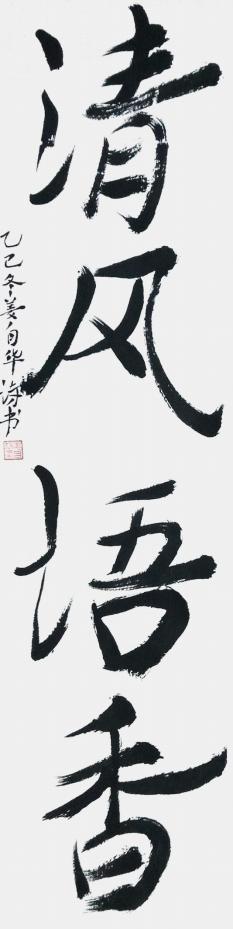 清风语香
乙巳冬姜自华海书